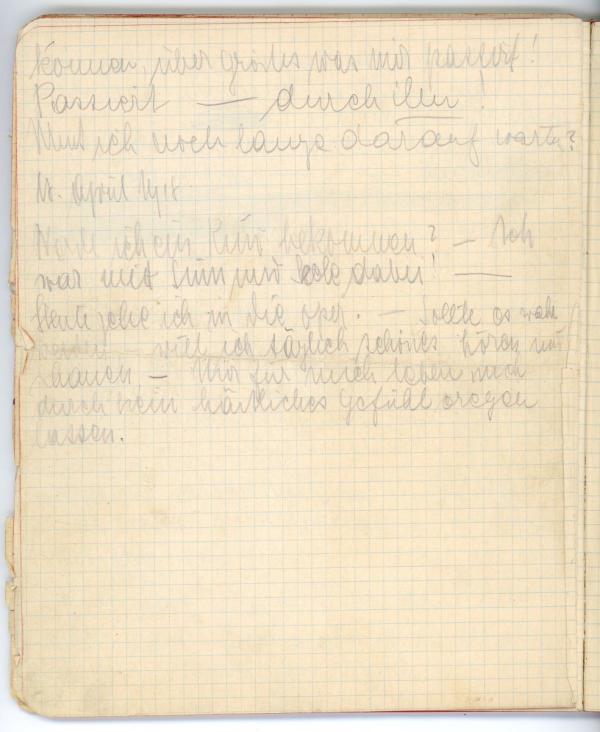 können, über großes was mir passiert!
Passiert — durch ihn!
Muß ich noch lange darauf warten?
18. April 1918.
Werde ich ein Kind bekommen? — Ich
war mit Sinn und Seele dabei! —
Heute gehe ich in die Oper. — Sollte es wahr
werden — will ich täglich schönes hören und
schauen — Nur für mich leben mich
durch kein häßliches Gefühl erregen
lassen.